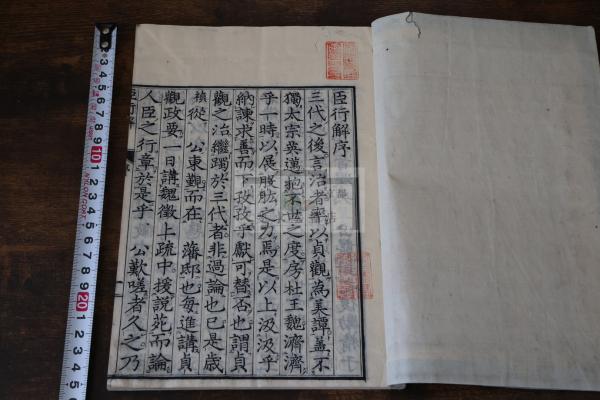 臣行解序
三代之後言治者率以貞觀為美譚蓋不
獨太宗英邁抱不世之度房杜王魏濟濟
乎一時以展股肱之力焉是以上汲汲乎
納諫求善而下孜孜乎獻可替否也謂貞
觀之治繼躅於三代者非過論也已是歲
槙從 公東覲而在 藩邸也每進講貞
觀政要一日講魏徵上疏中援說苑而論
人臣之行章於是乎 公歎嗟者久之乃